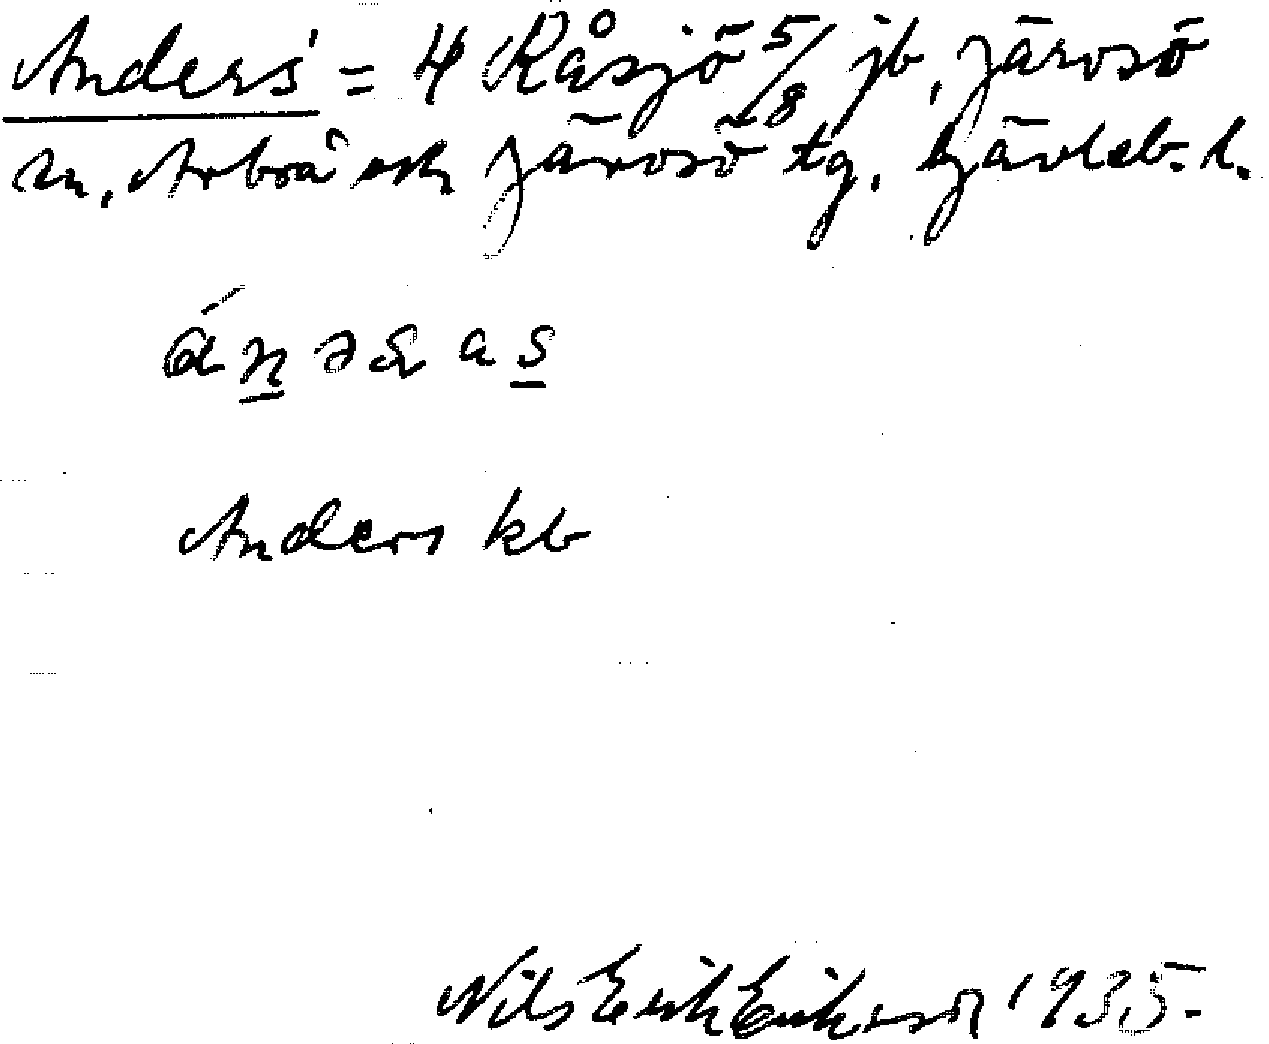 Anders' = 4 Råsjö 5/8 jb, Järvsö
sn, Arbrå och Järvsö tg. Gävleb. l.
Anders kb
Nils Erik Eriksson 1935.